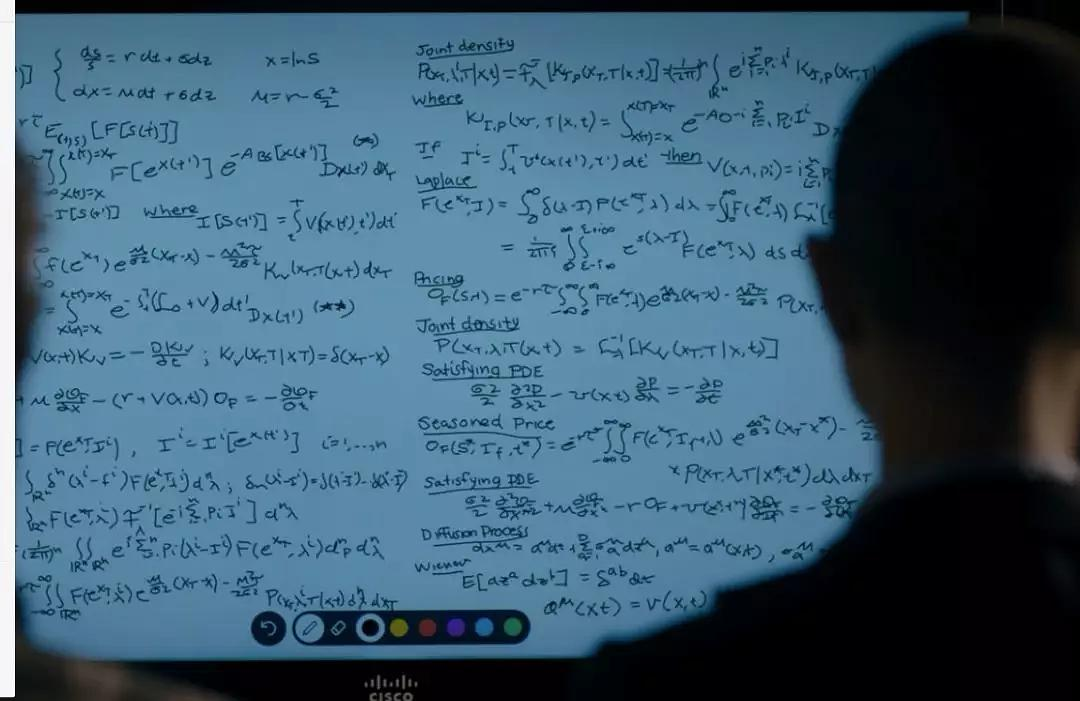 dS/S = r dt + σdz    x = ln S
dx = μdt + σdz    μ = r - σ²/2
E_(t,S) [F[S(t')]]
∫∫_{x(t)=x}^{x(T)=x_T} F[e^{x(t')}] e^{-A_BS[x(t')]} Dx(t') dx_T (**)
-I[S(t')] where I[S(t')] = ∫_t^T V(x(t'), t') dt'
∫^∞ f(e^{x_T}) e^{μ/σ²(x_T-x) - μ²τ/2σ²} K_V(x_T,T|x,t) dx_T
= ∫_{x(t)=x}^{x(T)=x_T} e^{-∫_t^T(L_0+V)dt'} Dx(t') (**)
V(x,t)K_V = -∂K_V/∂t ; K_V(x_T,T|x,T) = δ(x_T-x)
+ μ ∂O_F/∂x - (r + V(x,t)) O_F = -∂O_F/∂t
] = F(e^{x_T}, I^i), I^i = I^i[e^{x(t')}] i=1,...,n
∫_{ℝⁿ} δⁿ(λ^i - I^i) F(e^{x_T}, λ^i) dⁿλ ;
∫_{ℝⁿ} F(e^{x_T}, λ^i) F_λ^{-1} [e^{i Σ p_i I^i}] dⁿλ
(1/2π)ⁿ ∫∫_{ℝⁿ ℝⁿ} e^{i Σ p_i(λ^i - I^i)} F(e^{x_T}, λ^i) dⁿp dⁿλ
∫_{-∞}^∞ ∫_{ℝⁿ} F(e^{x_T}, λ^i) e^{μ/σ²(x_T-x) - μ²τ/2σ²} P(x_T, λ^i, T|x,t) dⁿλ dx_T
Joint density
P(x_T, λ^i, T|x,t) = F_λ^{-1} [K_{I,p}(x_T,T|x,t)] = (1/2π)ⁿ ∫_{ℝⁿ} e^{i Σ_{i=1}^n p_i λ^i} K_{I,p}(x_T,T
where
K_{I,p}(x_T, T|x,t) = ∫_{x(t)=x}^{x(T)=x_T} e^{-A_0 - i Σ_{i=1}^n p_i I^i} Dx
If I^i = ∫_t^T v^i(x(t'), t') dt' then V(x,t,p_i) = i Σ_{i=1}^n p
Laplace
F(e^{x_T}, I) = ∫_0^∞ δ(λ-I) F(e^{x_T}, λ) dλ = ∫_0^∞ F(e^{x_T}, λ) L_λ^{-1}[e
= 1/2πi ∫_0^∞ ∫_{ε-i∞}^{ε+i∞} e^{s(λ-I)} F(e^{x_T}, λ) ds d
Pricing
O_F(S,t) = e^{-rτ} ∫_{-∞}^∞ ∫_0^∞ F(e^{x_T}, λ) e^{μ/σ²(x_T-x) - μ²τ/2σ²} P(x_T,
Joint density
P(x_T, λ, T|x,t) = L_λ^{-1} [K_V(x_T, T|x,t)]
Satisfying PDE
σ²/2 ∂²P/∂x² - v(x,t) ∂P/∂λ = -∂P/∂t
Seasoned Price
O_F(S*, I_f, t*) = e^{-rτ*} ∫_{-∞}^∞ ∫_0^∞ F(e^{x_T}, I_f+λ) e^{μ/σ²(x_T-x*) -
× P(x_T, λ, T|x*, t*) dλ dx_T
Satisfying PDE
σ²/2 ∂²O_F/∂x² + μ ∂O_F/∂x - r O_F + v(x,t) ∂O_F/∂I = -
Diffusion Process
a^μ = a^μ(x,t),
Wiener
E[dz^a dz^b] = δ^{ab} dt
a^μ(x,t) = v(x,t)
CISCO